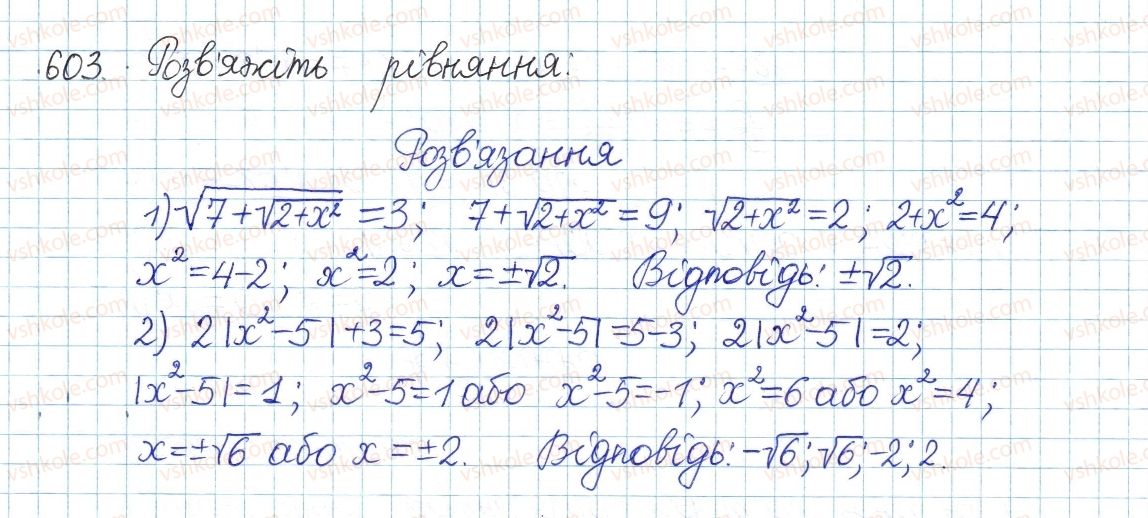 603. Розв'яжіть рівняння:
Розв'язання
1) √(7+√(2+x²)) = 3; 7+√(2+x²) = 9; √(2+x²) = 2; 2+x² = 4;
x² = 4-2; x² = 2; x = ±√2. Відповідь: ±√2.
2) 2|x²-5|+3=5; 2|x²-5|=5-3; 2|x²-5|=2;
|x²-5|=1; x²-5=1 або x²-5=-1; x²=6 або x²=4;
x=±√6 або x=±2. Відповідь: -√6; √6; -2; 2.
vshkole.com